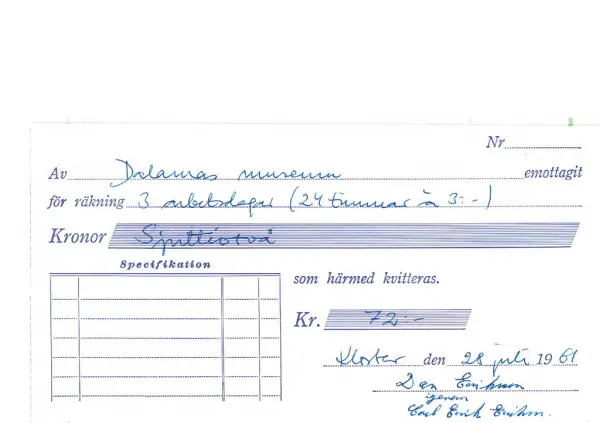 Nr
Av Dalarnas museum emottagit
för räkning 3 arbetsdagar (24 timmar à 3:-)
Kronor Sjuttiotvå
Specifikation
som härmed kvitteras.
Kr. 72:-
Kloster den 28 juli 1961
Dan Erikson
genom
Carl Erik Erikson.